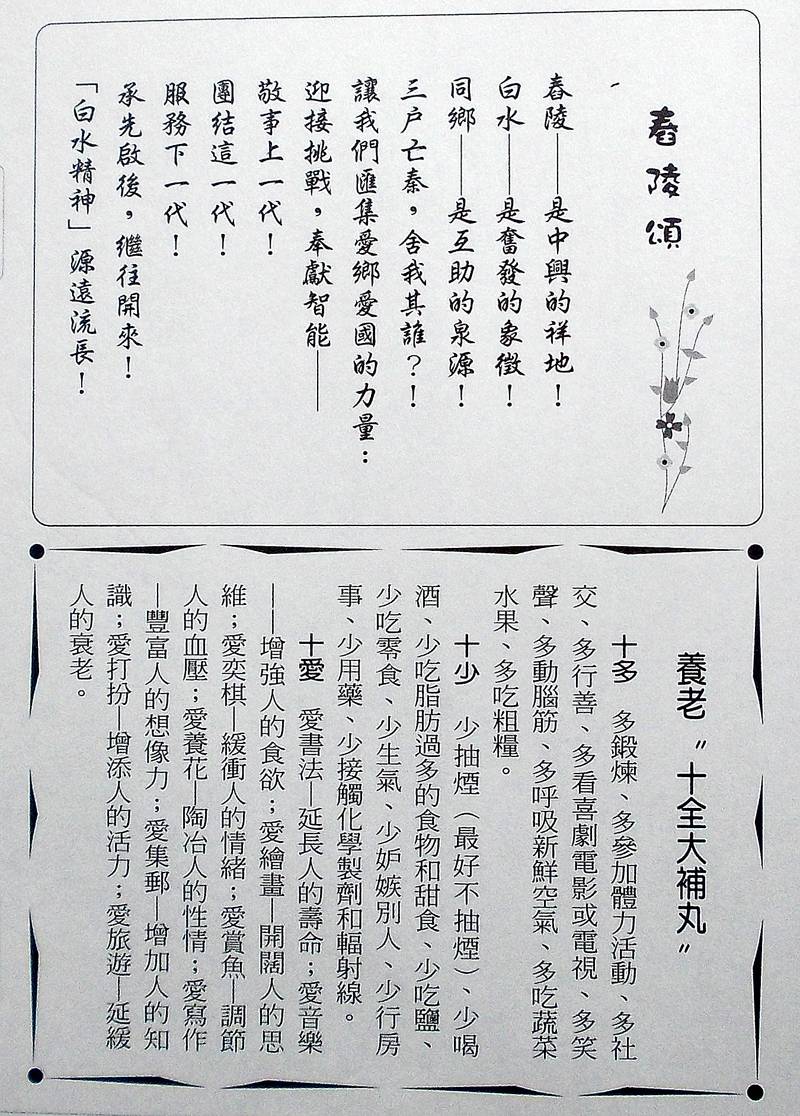 舂陵頌
舂陵——是中興的祥地！
白水——是奮發的象徵！
同鄉——是互助的泉源！
三户亡秦，舍我其誰？！
讓我們匯集愛鄉愛國的力量：
迎接挑戰，奉獻智能——
敬事上一代！
團結這一代！
服務下一代！
承先啟後，繼往開來！
「白水精神」源遠流長！
養老〝十全大補丸〞
十多　多鍛煉、多參加體力活動、多社
交、多行善、多看喜劇電影或電視、多笑
聲、多動腦筋、多呼吸新鮮空氣、多吃蔬菜
水果、多吃粗糧。
十少　少抽煙（最好不抽煙）、少喝
酒、少吃脂肪過多的食物和甜食、少吃鹽、
少吃零食、少生氣、少妒嫉別人、少行房
事、少用藥、少接觸化學製劑和輻射線。
十愛　愛書法—延長人的壽命；愛音樂
——增強人的食欲；愛繪畫—開闊人的思
維；愛奕棋—緩衝人的情緒；愛賞魚—調節
人的血壓；愛養花—陶冶人的性情；愛寫作
—豐富人的想像力；愛集郵—增加人的知
識；愛打扮—增添人的活力；愛旅遊—延緩
人的衰老。